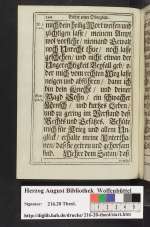 mich dein heilig Wort weisen und
züchtigen lasse / meinem Ampt
wol vorstehe / niemand Gewalt
noch Unrecht thue / noch laß
geschehen / und nicht etwan der
Ungerechtigkeit Beyfall geb / o-
der mich vom rechten Weg lasse
neigen und abführen / dann ich
bin dein Knecht / und deiner
Magd Sohn / ein schwacher
Mensch / und kurtzes Lebens /
und zu gering im Verstand deß
Rechtes und Gesetzes. Behüte
mich für Krieg und allem Un-
glück / erhalte meine Untertha-
nen / daß sie getreu und gehorsam
seyn. Wehre dem Satan / daß
Herzog August Bibliothek Wolfenbüttel
Signatur: 216.20 Theol.
http://diglib.hab.de/drucke/216-20-theol/start.htm